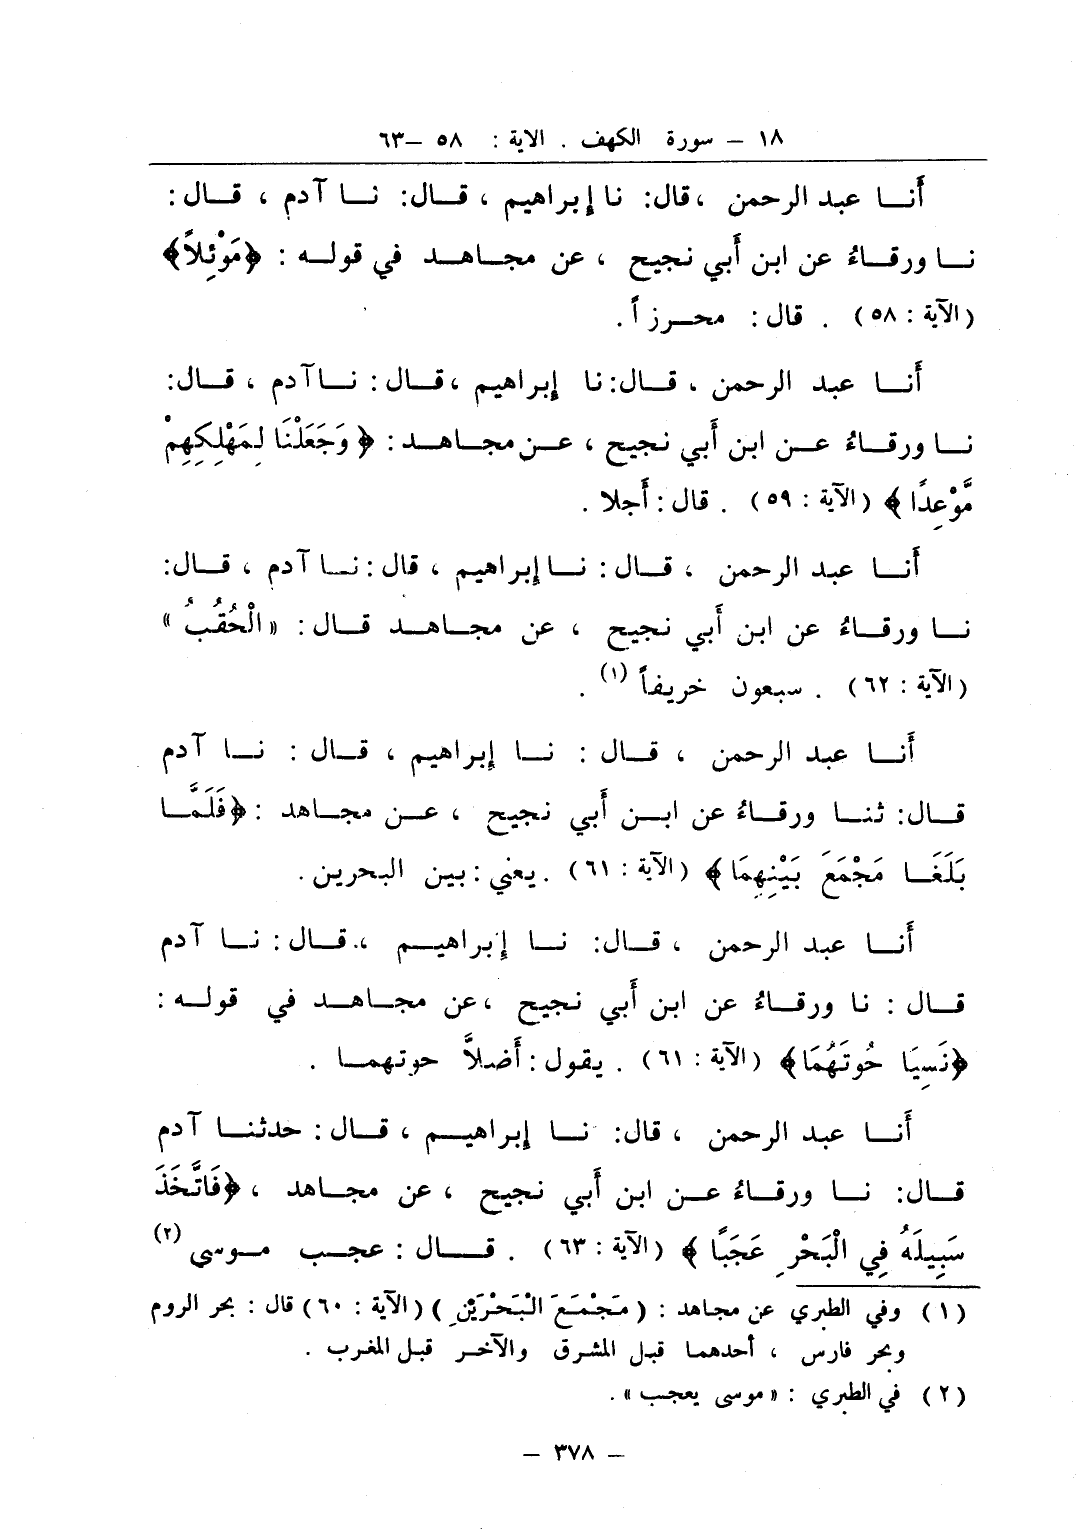 ١٨ – سورة الكهف . الاية : ٥٨ –٦٣
أنا عبد الرحمن ، قال: نا إبراهيم ، قال: نا آدم ، قال:
نا ورقاءُ عن ابن أبي نجيح ، عن مجاهد في قوله : ﴿مَوْئِلاً﴾
(الآية : ٥٨) . قال : محرزاً .
أنا عبد الرحمن ، قال: نا إبراهيم ، قال : نا آدم ، قال:
نا ورقاءُ عن ابن أبي نجيح ، عن مجاهد : ﴿ وَجَعَلْنَا لِمَهْلِكِهِمْ
مَّوْعِدًا ﴾ (الآية : ٥٩) . قال : أجلا .
أنا عبد الرحمن ، قال : نا إبراهيم ، قال : نا آدم ، قال:
نا ورقاءُ عن ابن أبي نجيح ، عن مجاهد قال : « الْحُقُبُ »
(الآية : ٦٢) . سبعون خريفاً (١) .
أنا عبد الرحمن ، قال : نا إبراهيم ، قال : نا آدم
قال: ثنا ورقاءُ عن ابن أبي نجيح ، عن مجاهد : ﴿فَلَمَّا
بَلَغَا مَجْمَعَ بَيْنِهِمَا ﴾ (الآية : ٦١) . يعني : بين البحرين .
أنا عبد الرحمن ، قال: نا إبراهيم ، قال : نا آدم
قال : نا ورقاءُ عن ابن أبي نجيح ، عن مجاهد في قوله :
﴿نَسِيَا حُوتَهُمَا﴾ (الآية : ٦١) . يقول : أضلاَّ حوتهما .
أنا عبد الرحمن ، قال: نا إبراهيم ، قال : حدثنا آدم
قال: نا ورقاءُ عن ابن أبي نجيح ، عن مجاهد ، ﴿فَاتَّخَذَ
سَبِيلَهُ فِي الْبَحْرِ عَجَبًا ﴾ (الآية : ٦٣) . قال : عجب موسى (٢)
(١) وفي الطبري عن مجاهد : ( مَجْمَعَ الْبَحْرَيْنِ ) (الآية : ٦٠) قال : بحر الروم
وبحر فارس ، أحدهما قبل المشرق والآخر قبل المغرب .
(٢) في الطبري : « موسى يعجب » .
– ٣٧٨ –